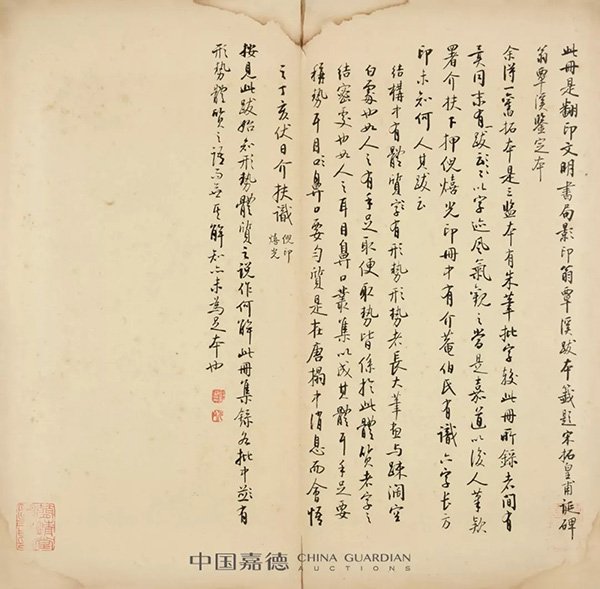 此册是翻印文明書局影印翁覃溪跋本籤題宋拓皇甫誕碑
翁覃溪鑒定本
余得一舊拓本是三監本有朱筆批字較此册所錄者間有
異同末有跋云以字迹風氣觀之當是嘉道以後人筆款
署介扶下押倪熺光印册中有介菴伯氏有識六字長方
印未知何人其跋云
結構中有體質字有形勢形勢者長大筆畫與疎濶空
白處也如人之有手足取便取勢皆係於此體質者字之
結密處也如人之耳目鼻口叢集以成其體耳手足要
稱勢耳目鼻口要勻質是在唐搨中消息而會悟
之丁亥伏日介扶識
倪印
熺光
按見此跋始知形勢體質之說作何解此册集錄各批中並有
形勢體質之語而無其解知亦未為足本也
中国嘉德 CHINA GUARDIAN
AUCTIONS